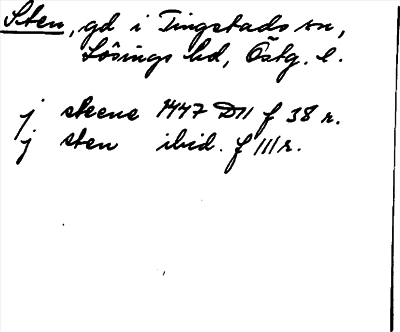 Sten, gd i Tingstads sn,
Lösings hd, Östg. l.
j steene 1447 D11 f 38 r.
j sten ibid. f 111 r.